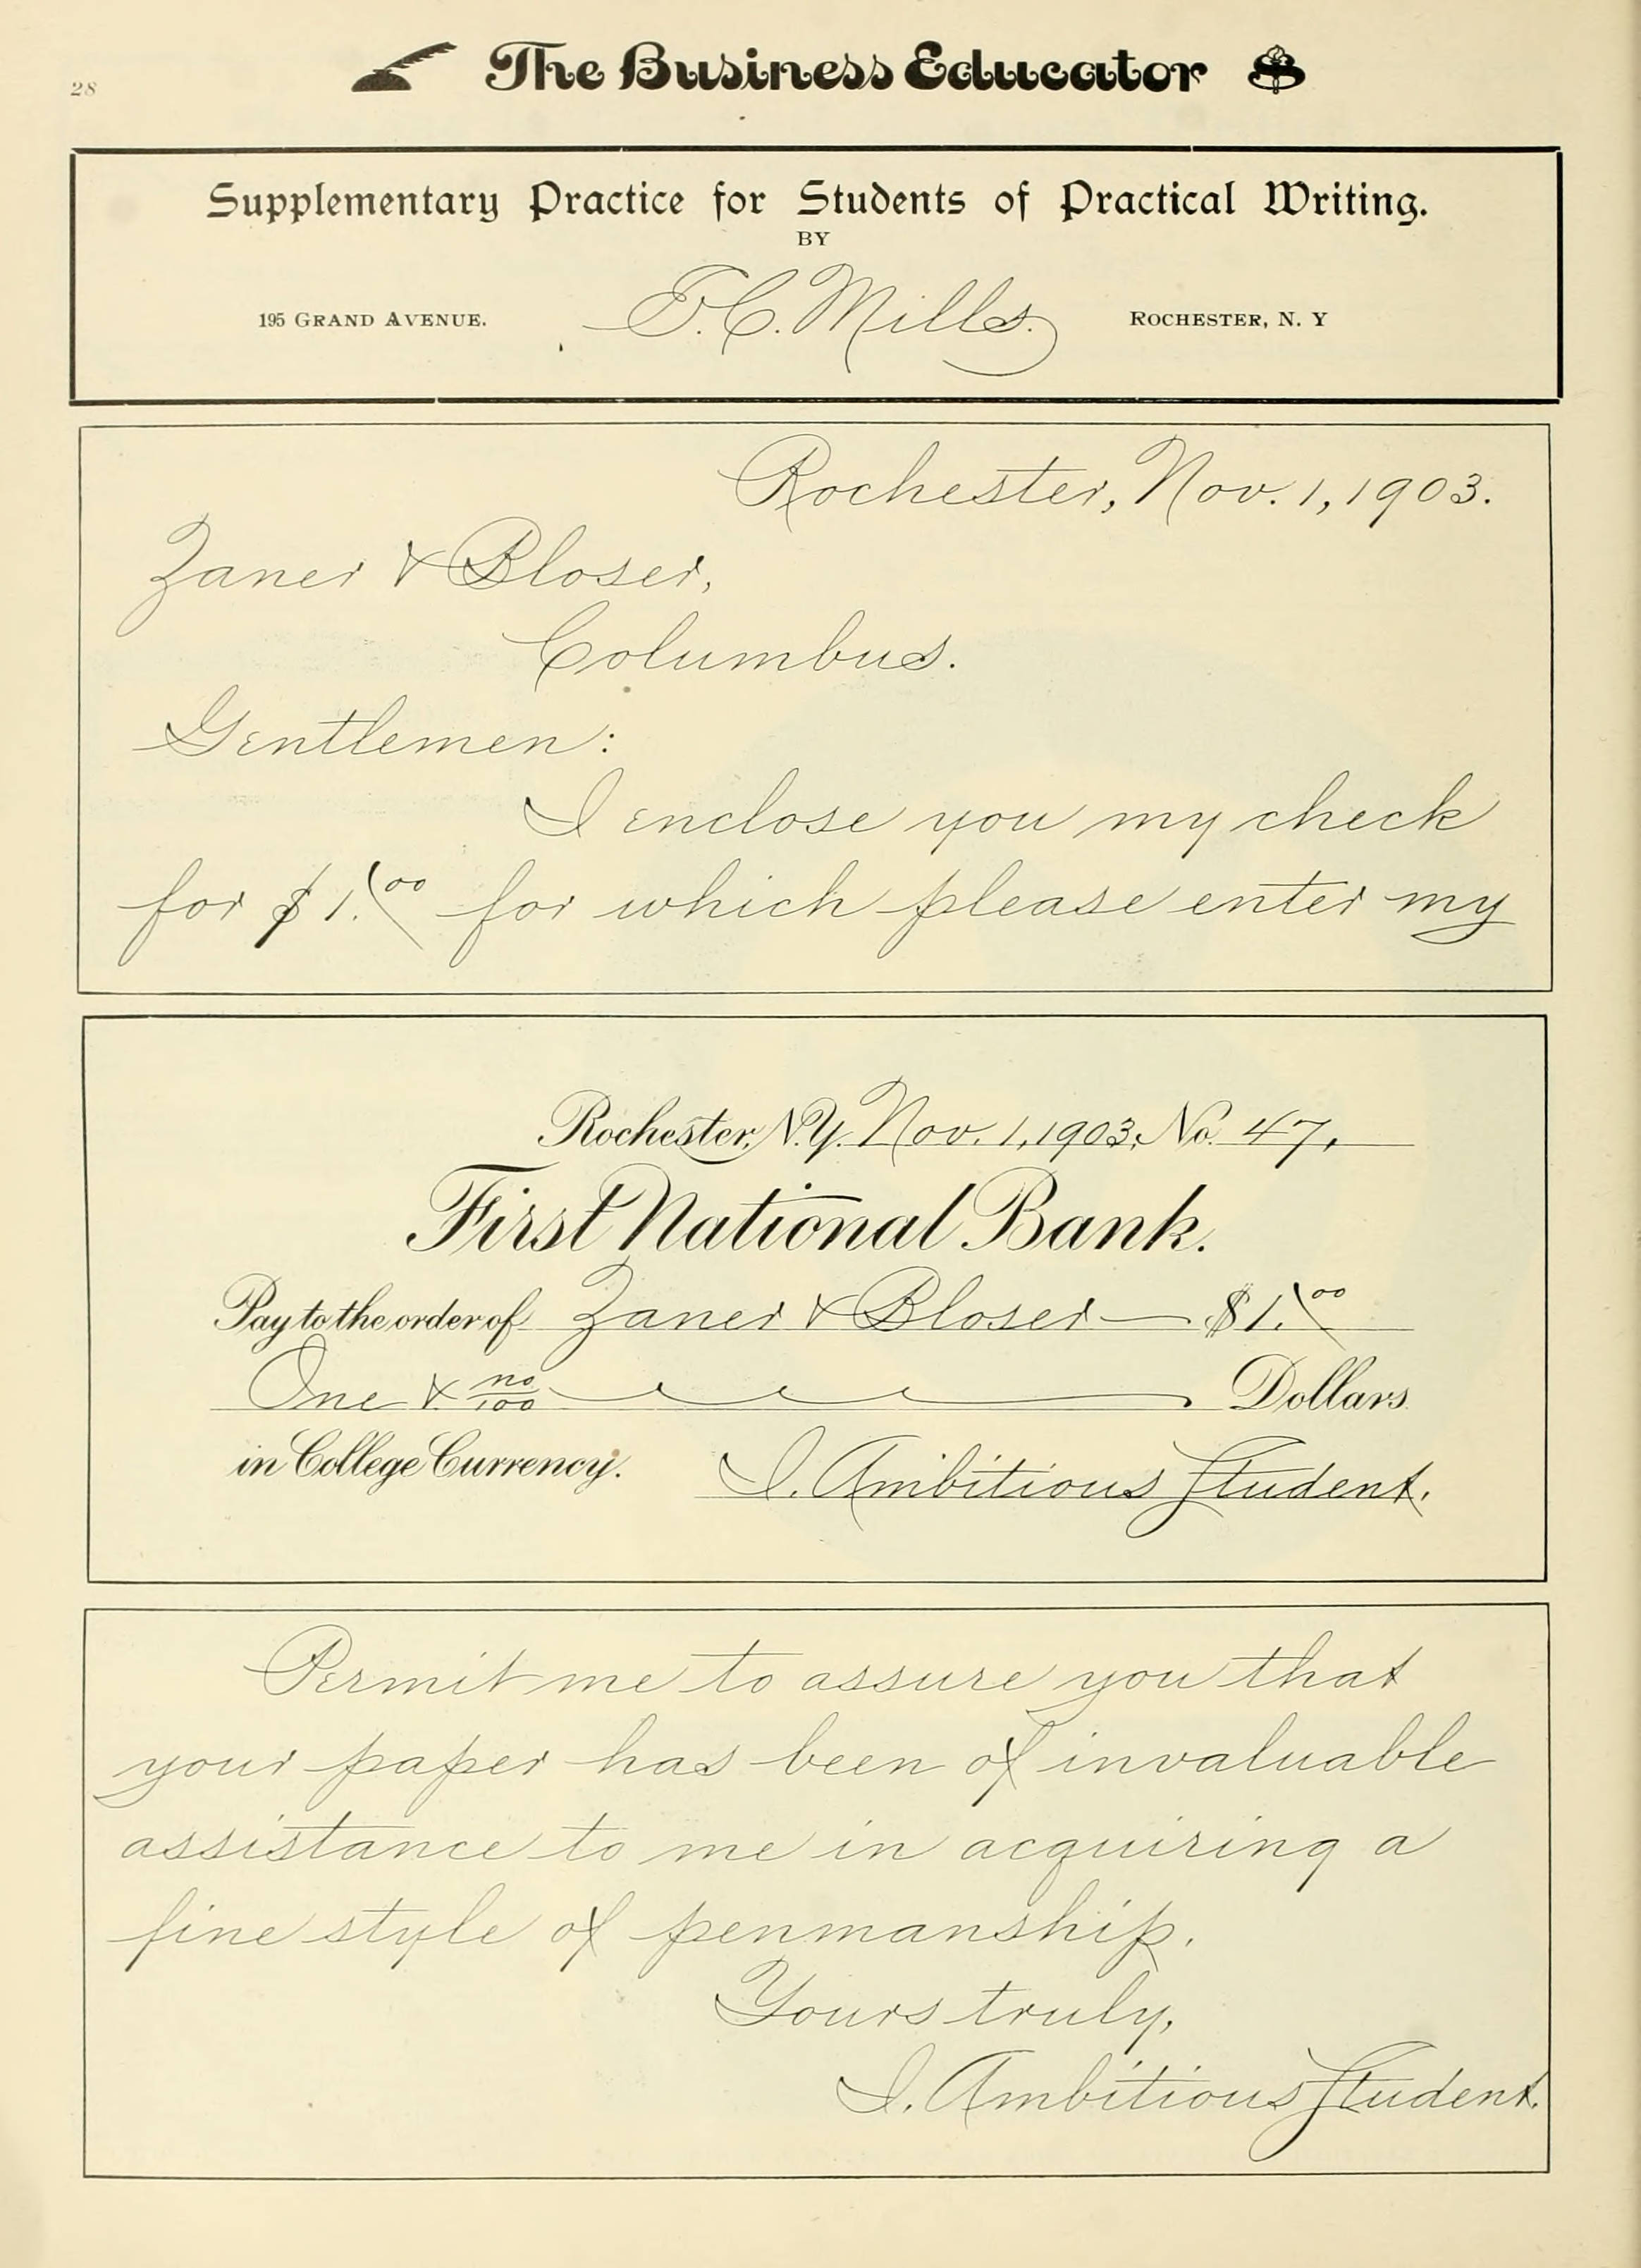 28
The Business Educator
Supplementary Practice for Students of Practical Writing.
BY
195 GRAND AVENUE. F.C. Mills. ROCHESTER, N. Y
Rochester, Nov. 1, 1903.
Zaner & Bloser,
Columbus.
Gentlemen:
I enclose you my check
for $1.00 for which please enter my
Rochester, N.Y. Nov. 1, 1903. No. 47.
First National Bank.
Pay to the order of Zaner & Bloser $1.00
One & no/100 Dollars
in College Currency. I. Ambitious Student.
Permit me to assure you that
your paper has been of invaluable
assistance to me in acquiring a
fine style of penmanship.
Yours truly,
I. Ambitious Student.